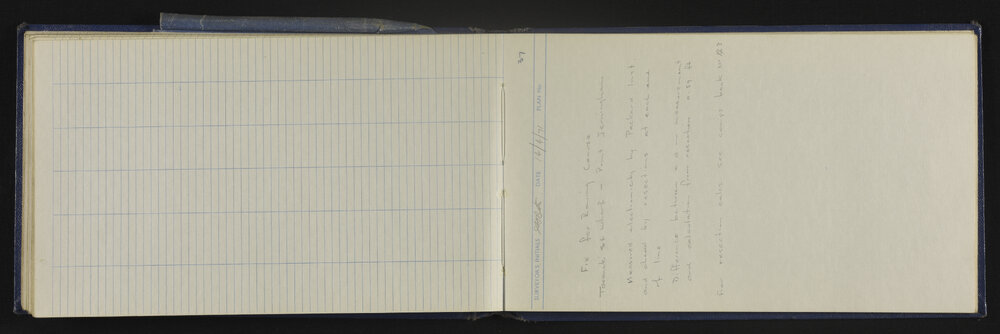 37
SURVEYOR'S INITIALS DATE 16/6/71 PLAN No.
Fix for Rowing Course
Wharf - Point Jerningham
Measured electronically by Packard Inst
and check by resections at each end
of line
Difference between e.d.m measurement
and calculation from resection
For resection calcs see comps book No 123